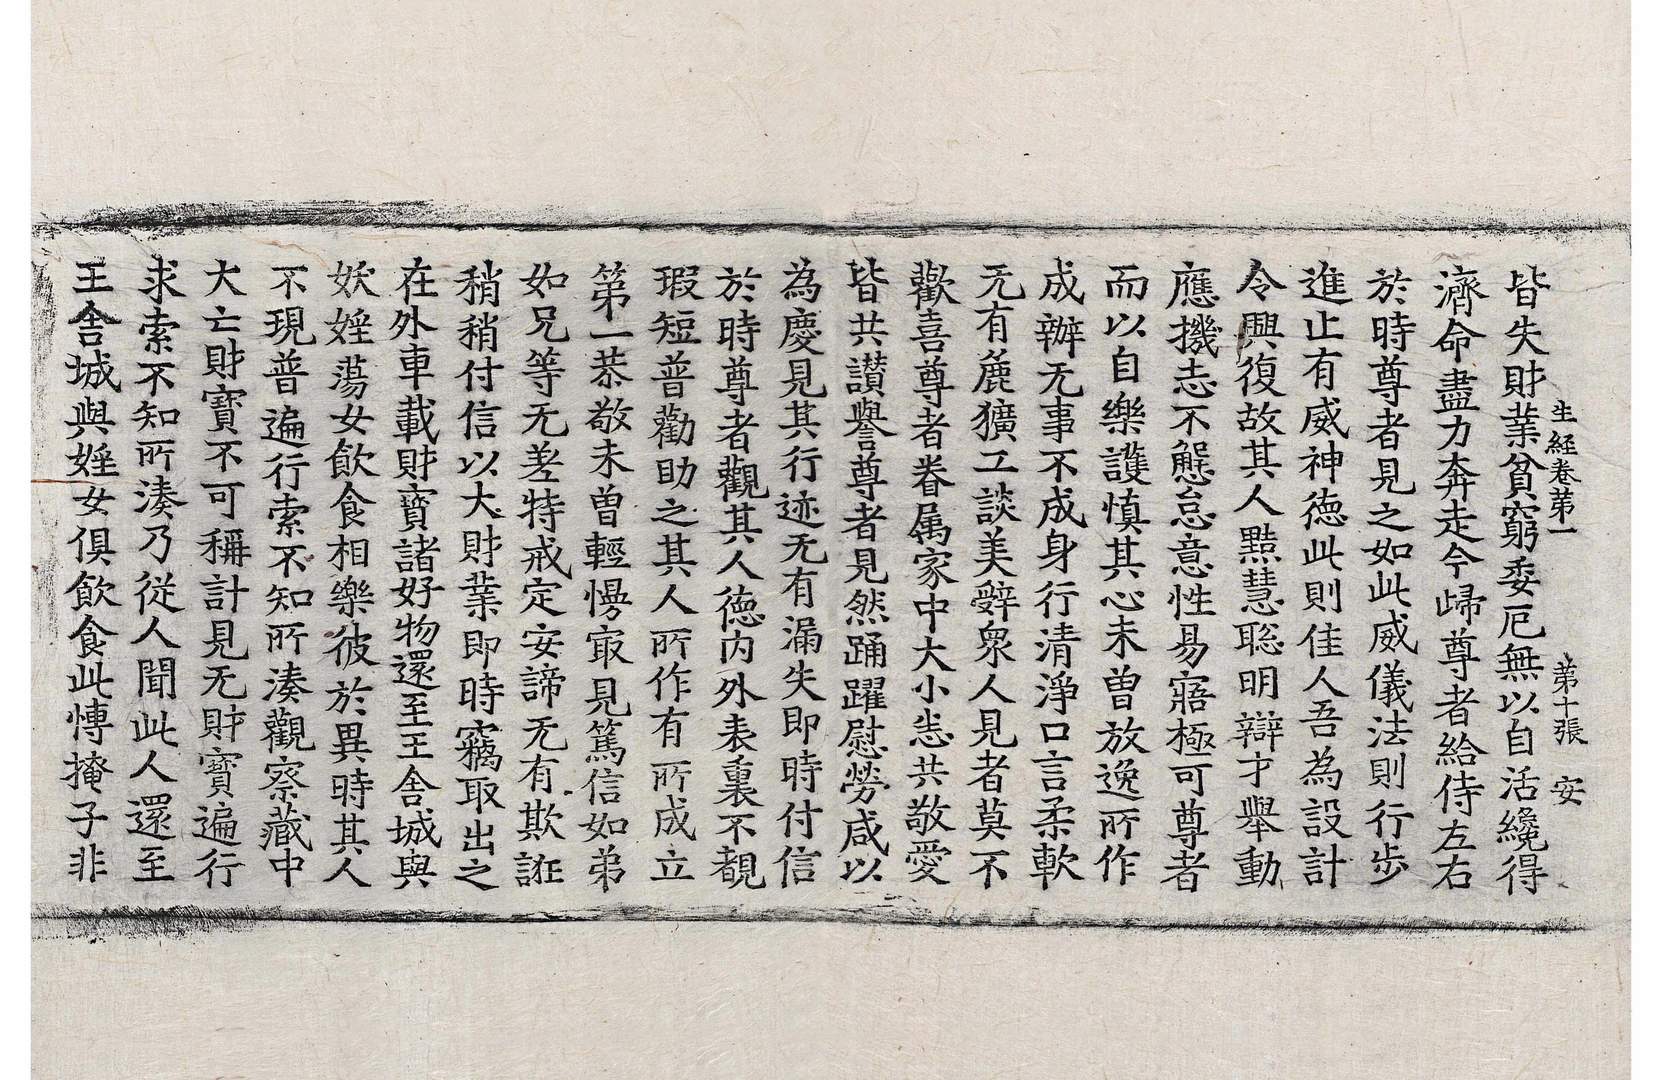 生經卷苐一 苐十張 安
皆失財業貧窮委厄無以自活纔得
濟命盡力奔走今歸尊者給侍左右
於時尊者見之如此威儀法則行步
進止有威神德此則佳人吾為設計
令興復故其人黠慧聦明辯才舉動
應機志不懈怠意性易寤極可尊者
而以自樂護慎其心未曽放逸所作
成辦无事不成身行清淨口言柔軟
无有麁獷工談美辝衆人見者莫不
歡喜尊者眷属家中大小悉共敬愛
皆共讃譽尊者見然踊躍慰勞咸以
為慶見其行迹无有漏失即時付信
於時尊者觀其人徳内外表裏不覩
瑕短普勸助之其人所作有所成立
第一恭敬未曽輕慢㝡見篤信如弟
如兄等无差特戒定安諦无有欺誑
稍稍付信以大財業即時竊取出之
在外車載財寳諸好物還至王舍城與
妖婬蕩女飲食相樂彼於異時其人
不現普遍行索不知所湊觀察藏中
大亡財寳不可稱計見无財寳遍行
求索不知所湊乃從人聞此人還至
王舍城與婬女俱飲食此愽掩子非